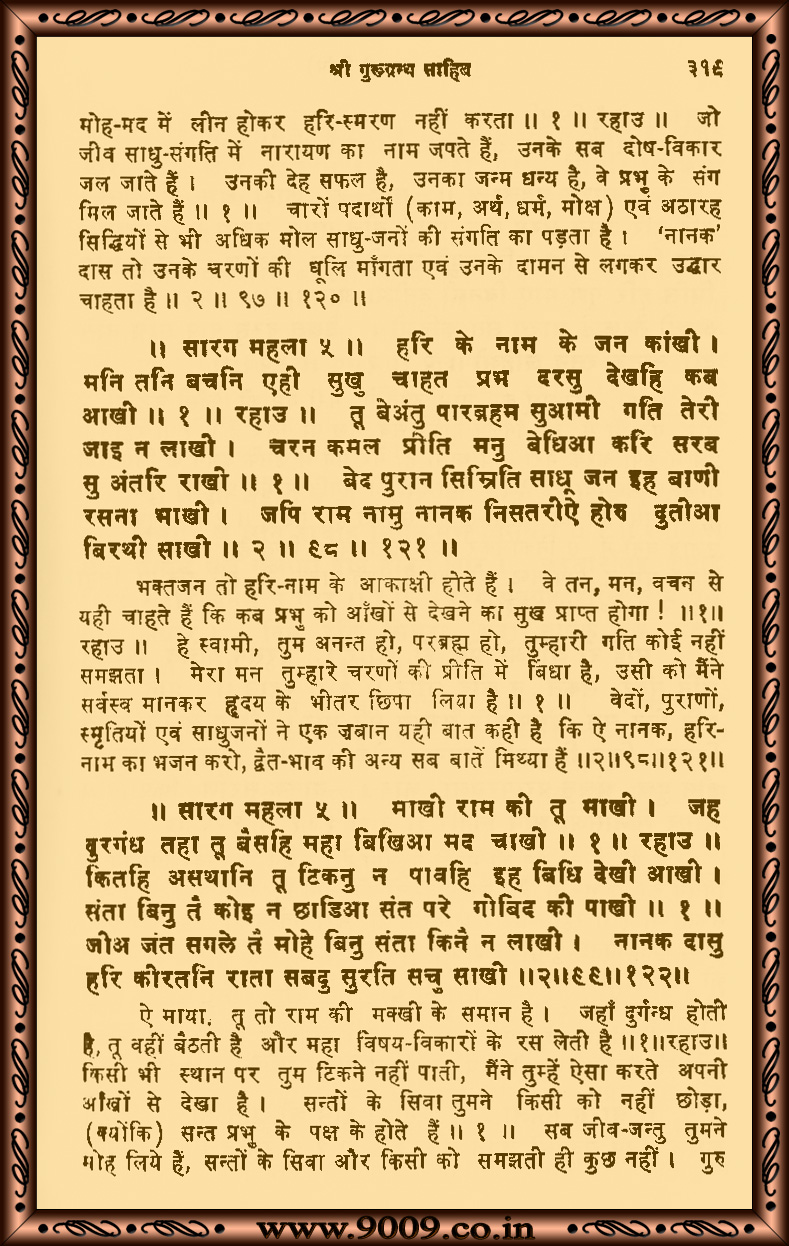 श्री गुरुग्रन्थ साहिब ३१९
मोह-मद में लीन होकर हरि-स्मरण नहीं करता ॥ १ ॥ रहाउ ॥ जो
जीव साधु-संगति में नारायण का नाम जपते हैं, उनके सब दोष-विकार
जल जाते हैं । उनकी देह सफल है, उनका जन्म धन्य है, वे प्रभु के संग
मिल जाते हैं ॥ १ ॥ चारों पदार्थों (काम, अर्थ, धर्म, मोक्ष) एवं अठारह
सिद्धियों से भी अधिक मोल साधु-जनों की संगति का पड़ता है । ‘नानक’
दास तो उनके चरणों की धूलि माँगता एवं उनके दामन से लगकर उद्धार
चाहता है ॥ २ ॥ ९७ ॥ १२० ॥
॥ सारग महला ५ ॥ हरि के नाम के जन कांखी ।
मनि तनि बचनि एही सुखु चाहत प्रभ दरसु देखहि कब
आखी ॥ १ ॥ रहाउ ॥ तू बेअंतु पारब्रहम सुआमी गति तेरी
जाइ न लाखी । चरन कमल प्रीति मनु बेधिआ करि सरब
सु अंतरि राखी ॥ १ ॥ बेद पुरान सिम्रिति साधू जन इह बाणी
रसना भाखी । जपि राम नामु नानक निसतरीऐ होरु दुतीआ
बिरथी साखी ॥ २ ॥ ९८ ॥ १२१ ॥
भक्तजन तो हरि-नाम के आकांक्षी होते हैं । वे तन, मन, वचन से
यही चाहते हैं कि कब प्रभु को आँखों से देखने का सुख प्राप्त होगा ! ॥१॥
रहाउ ॥ हे स्वामी, तुम अनन्त हो, परब्रह्म हो, तुम्हारी गति कोई नहीं
समझता । मेरा मन तुम्हारे चरणों की प्रीति में बिंधा है, उसी को मैंने
सर्वस्व मानकर हृदय के भीतर छिपा लिया है ॥ १ ॥ वेदों, पुराणों,
स्मृतियों एवं साधुजनों ने एक ज़बान यही बात कही है कि ऐ नानक, हरि-
नाम का भजन करो, द्वैत-भाव की अन्य सब बातें मिथ्या हैं ॥२॥९८॥१२१॥
॥ सारग महला ५ ॥ माखी राम की तू माखी । जह
दुरगंध तहा तू बैसहि महा बिखिआ मद चाखी ॥ १ ॥ रहाउ ॥
कितहि असथानि तू टिकनु न पावहि इह बिधि देखी आखी ।
संता बिनु तै कोइ न छाडिआ संत परे गोबिद की पाखी ॥ १ ॥
जीअ जंत सगले तै मोहे बिनु संता किनै न लाखी । नानक दासु
हरि कीरतनि राता सबदु सुरति सचु साखी ॥२॥९९॥१२२॥
ऐ माया, तू तो राम की मक्खी के समान है । जहाँ दुर्गन्ध होती
है, तू वहीं बैठती है और महा विषय-विकारों के रस लेती है ॥१॥रहाउ॥
किसी भी स्थान पर तुम टिकने नहीं पाती, मैंने तुम्हें ऐसा करते अपनी
आँखों से देखा है । सन्तों के सिवा तुमने किसी को नहीं छोड़ा,
(क्योंकि) सन्त प्रभु के पक्ष के होते हैं ॥ १ ॥ सब जीव-जन्तु तुमने
मोह लिये हैं, सन्तों के सिवा और किसी को समझती ही कुछ नहीं । गुरु
www.9009.co.in